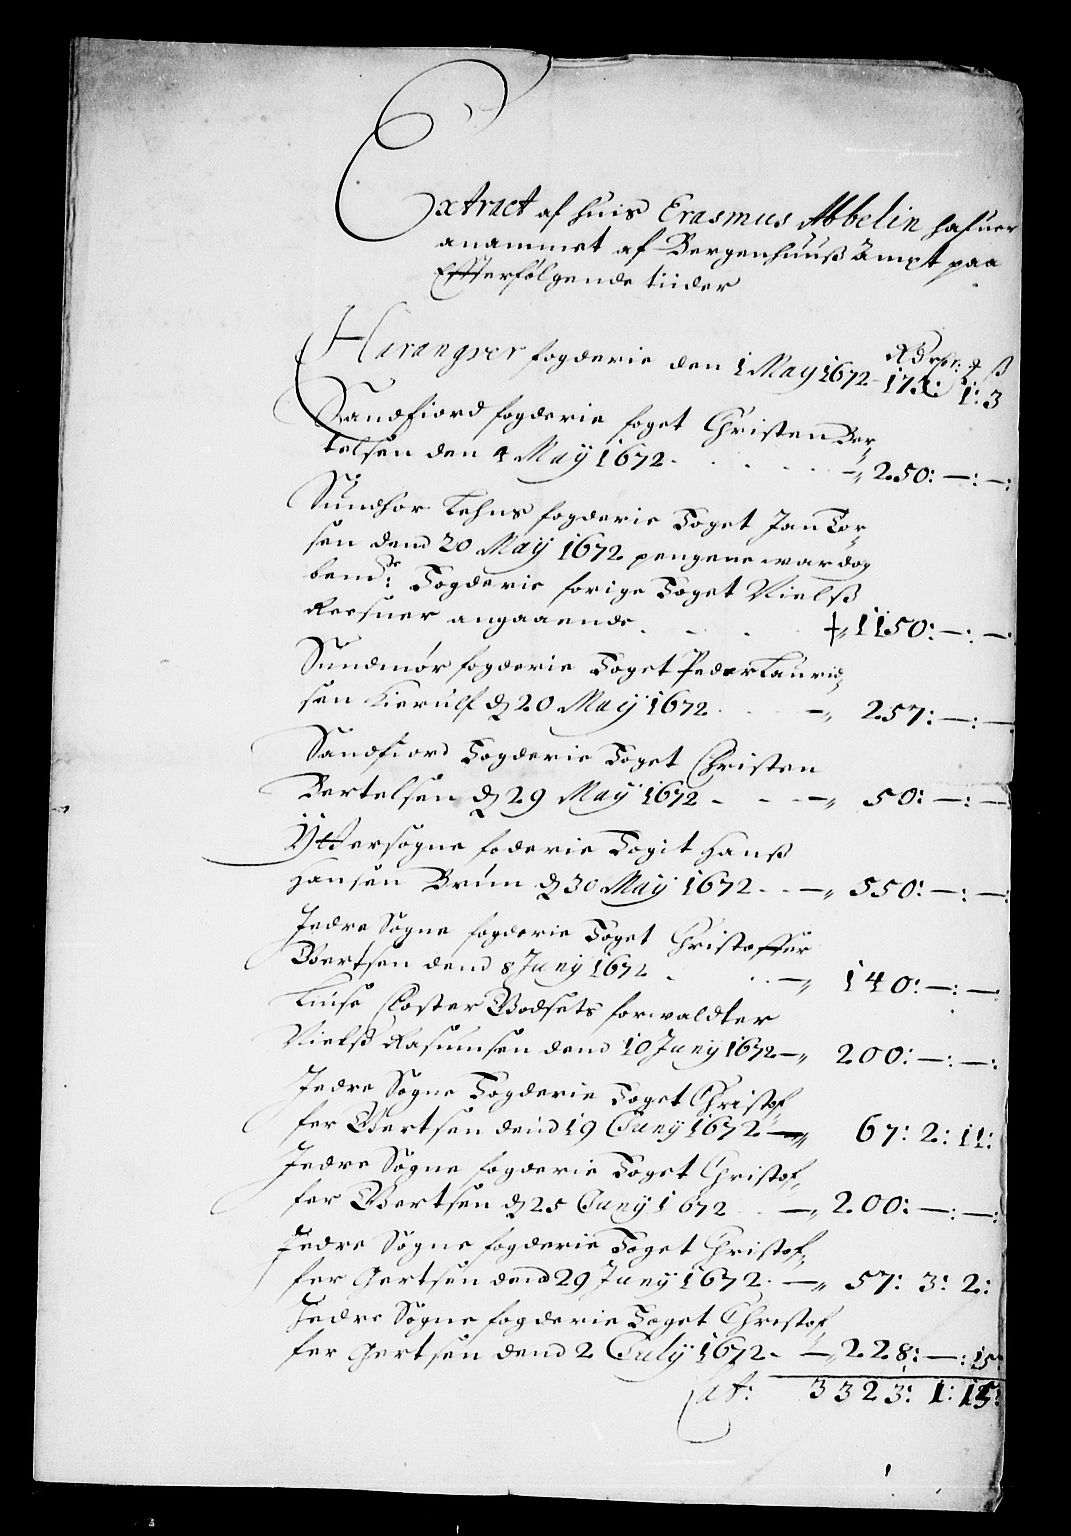 Extract af huis Erasmus Abbelin hafuer
anammet af Bergenhuuß ampt paa
Effterfølgende tiider
Rdr ort ß
Harangrer fogderie den 1 May 1672 - 173: 1: 3
Sandfiord fogderie foget Christen Ber-
telsen den 4 May 1672 . . . . . -„ 250: —: —:
Sundhor Lehns fogderie Foget Jan Tor-
sen dend 20 May 1672 pengene war dog
bemde: Fogderie forige Foget Nielß
Reesner angaaende . . . „ 1150: —: —:
Sundmør fogderie Foget Peder Laurid-
sen Kierulf d 20 May 1672 . . —„ 257: —: —
Sandfiord Fogderie Foget Christen
Bertelsen d 29 May 1672 - - - —„ 50: —: —
Yttersogne foderie Fogit Hanß
Hansen Bruun d 30 May 1672 . . —„ 550: —: —:
Indre Sogne fogderie Foget Christoffer
Giertsen dend 8 Juny 1672 . . . —„ 140: —: —:
Liuse Closter Godsets forwaldter
Nielß Rasmusen dend 10 Juny 1672 —„ 200: —: —:
Indre Sogne Fogderie Foget Christof-
fer Giertsen dend 19 Juny 1672 —„ 67: 2: 11:
Indre Sogne fogderie Foget Christof-
fer Giertsen d 25 Juny 1672 . . —„ 200: —: —:
Indre Sogne fogderie Foget Christof-
fer Gertsen dend 29 Juny 1672 . —„ 57: 3: 2:
Indre Sogne fogderie Foget Christof-
fer Gertsen dend 2 July 1672 - —„ 228: —: 15:
Lat: 3323: 1: 15: